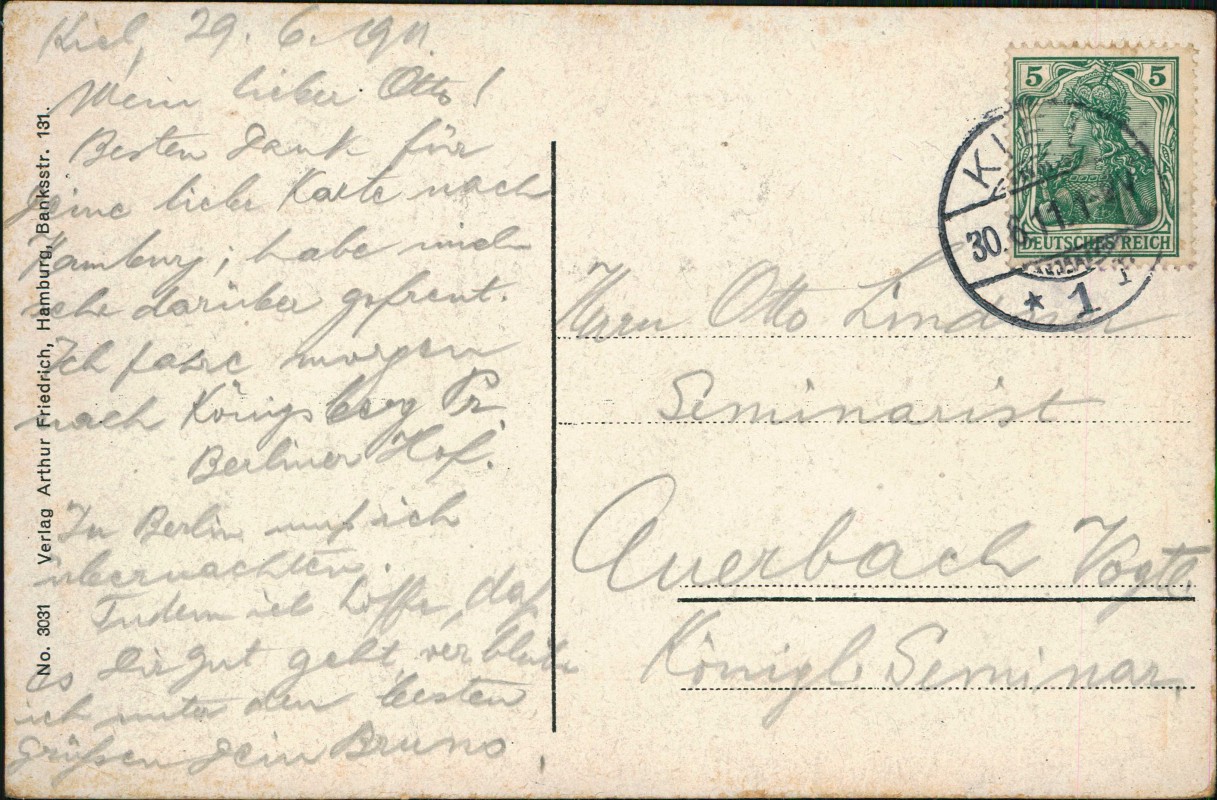 Kiel, 29. 6. 1911.
Mein lieber Otto!
Besten Dank für
Deine liebe Karte nach
Hamburg; habe mich
sehr darüber gefreut.
Ich fahre morgen
nach Königsberg Pr.
Berliner Hof.
In Berlin muß ich
übernachten.
Indem ich hoffe, daß
es Dir gut geht, verbleibe
ich unter den besten
Grüßen Dein Bruno
No. 3031 Verlag Arthur Friedrich, Hamburg, Banksstr. 131.
5 5
DEUTSCHES REICH
30. 6. 11. 1-
* 1
Herrn Otto
Seminarist
Auerbach Vogtl
Königl. Seminar.